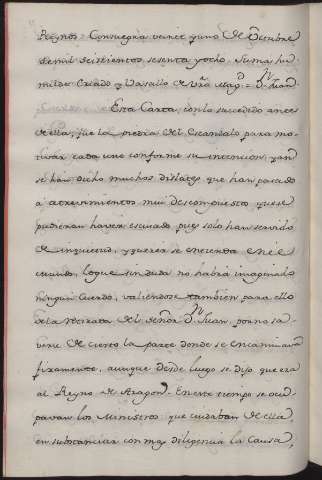 Reynos. Consuegra veinte y uno de Octubre
de mil seiscientos sesenta y ocho. Su mas hu
milde Criado y Vasallo de Vrã Magd. = Dn. Juan.
Esta Carta, con lo succedido antes
de ella, fue la piedra del Escandalo para mo
tivar cada uno conforme su intencion, y an
se han dicho muchos dislates que han pasado
à atrevimientos mui descompuestos que se
pudieran haver escusado pues solo han servido
de inquietud, y querer se entienda en el
mundo, lo que sin duda no habrá imaginado
ningun Cuerdo, valiendose tambien para ello
de la retirada del Señor Dn. Juan, por no sa
verse de cierto la parte donde se encaminava
fixamente, aunque desde luego se dijo que era
al Reyno de Aragon. En este tiempo se ocu
pavan los Ministros que cuidaban de ella,
en substanciar con mas diligencia la Causa,